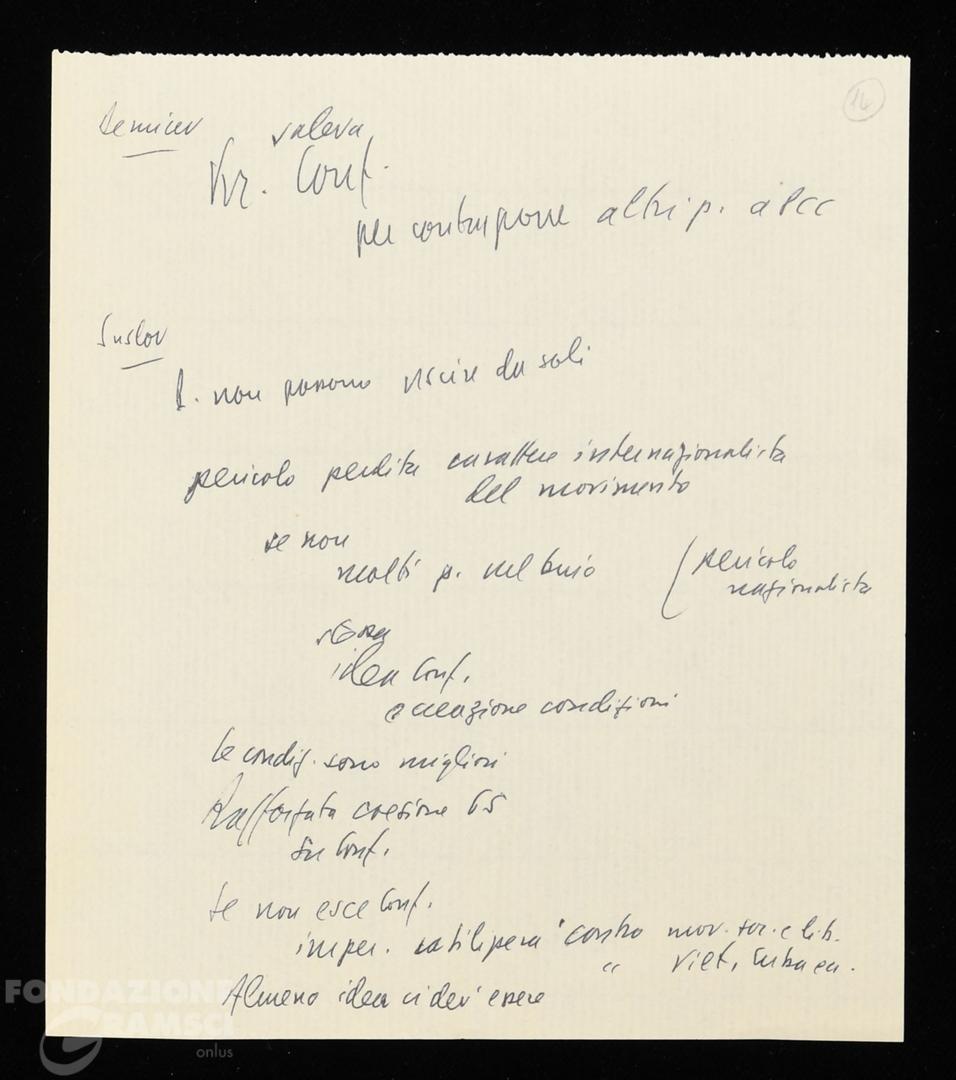 14
Demicev voleva
Kr. Conf.
per contrapporre altri p. a PCC
Suslov
I. non possono uscire da soli
pericolo perdita carattere internazionalista
del movimento
se non
molti p. nel buio (pericolo
nazionalista
idea Conf.
e creazione condizioni
le condiz. sono migliori
Rafforzata coesione
su Conf.
Se non esce Conf.
imper. contro mov. soc. e lib.
" Viet, Cuba ecc.
Almeno idea ci dev' essere
FONDAZIONE
GRAMSCI
onlus